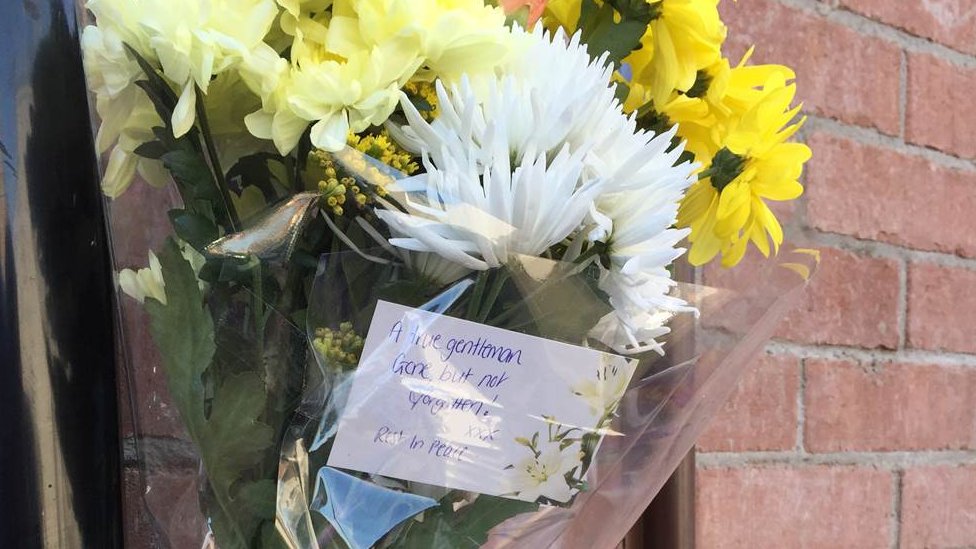 A true gentleman
Gone, but not
forgotten!
xxx
Rest In Peace